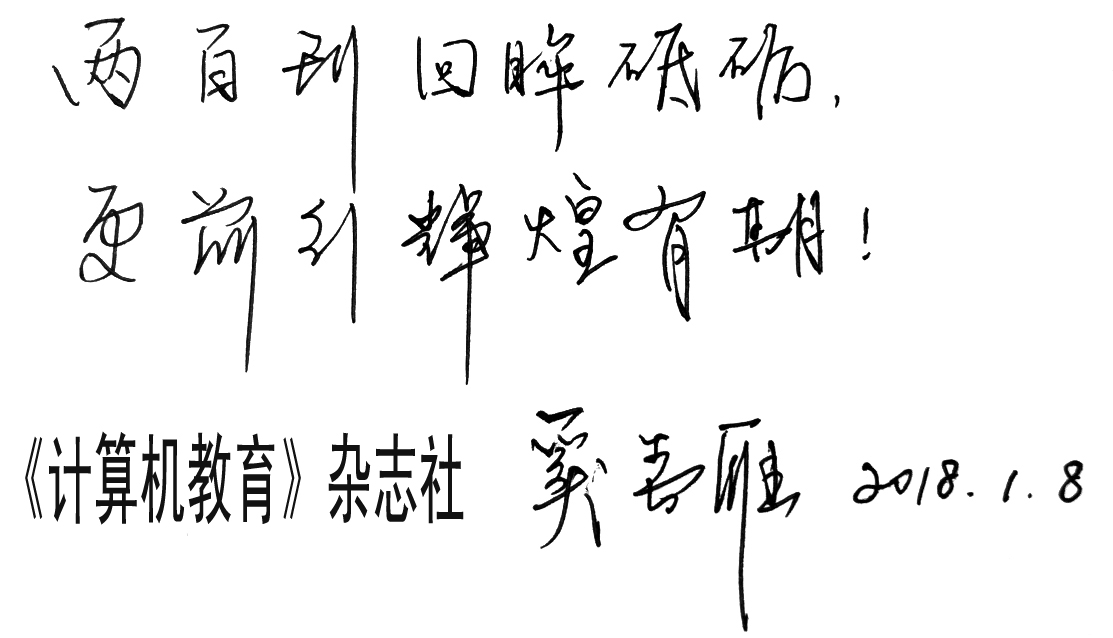 两百刊回眸砥砺,
更前行辉煌有期!
《计算机教育》杂志社 奚春雁 2018.1.8